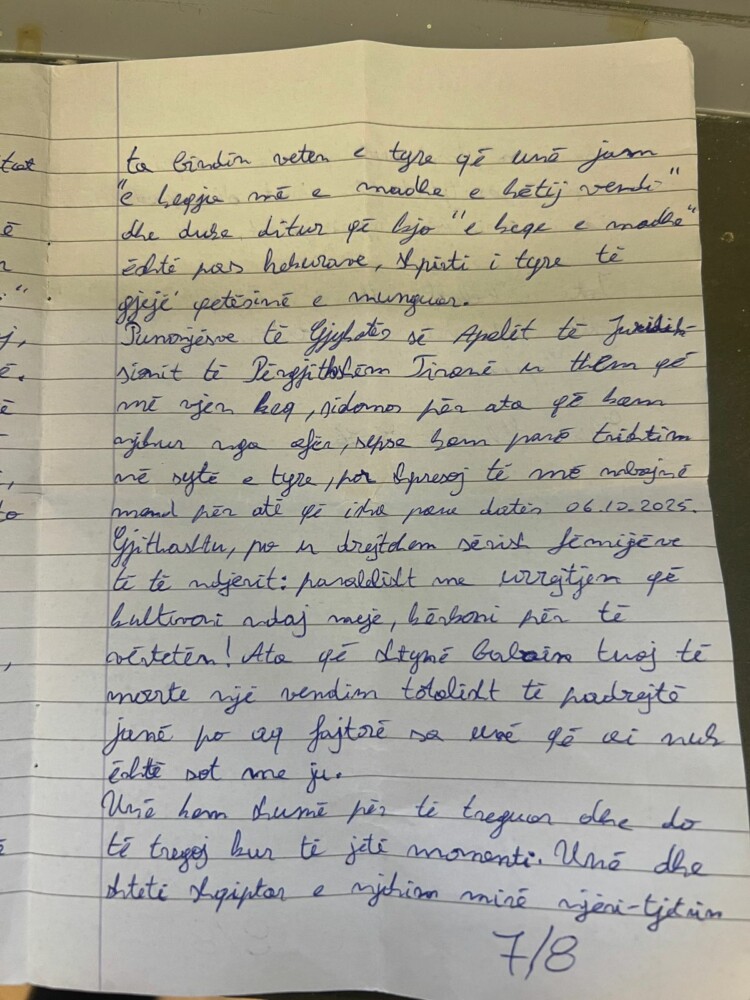 tuar
ë
ë.
ta bindin veten e tyre që unë jam
"e keqja më e madhe e këtij vendi"
dhe duke ditur që kjo "e keqe e madhe"
është pas hekurave, shpirti i tyre të
gjejë qetësinë e munguar.
Punonjësve të Gjykatës së Apelit të Juridik-
sionit të Përgjithshëm Tiranë u them që
më vjen keq, sidomos për ata që kam
njohur nga afër, sepse kam parë trishtim
në sytë e tyre, por shpresoj të më mbajnë
mend për atë që isha para datës 06.10.2025.
Gjithashtu, po u drejtohem sërish fëmijëve
të të ndjerit: paralelisht me urrejtjen që
kultivoni ndaj meje, kërkoni për të
vërtetën! Ata që shtynë babain tuaj të
marrte një vendim totalisht të padrejtë
janë po aq fajtorë sa unë që ai nuk
është sot me ju.
Unë kam shumë për të treguar dhe do
të tregoj kur të jetë momenti. Unë dhe
shteti shqiptar e njohim mirë njëri-tjetrin
7/8